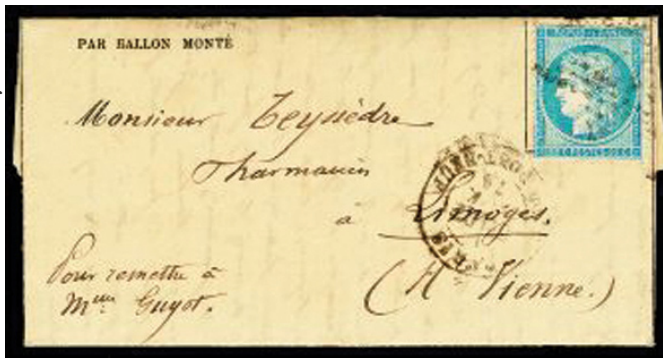 PAR BALLON MONTÉ
Monsieur Teyssèdre
Pharmacien
à
Limoges.
(Hte Vienne.)
Pour remettre à
Mme Guyot.